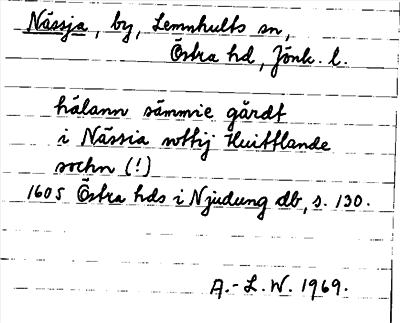 Nässja, by, Lemnhults sn,
Östra hd, Jönk. l.
hälann sämmie gårdt
i Nässia wttij Huittlande
sochn (!)
1605 Östra hds i Njudung db, s. 130.
A.-L.W. 1969.